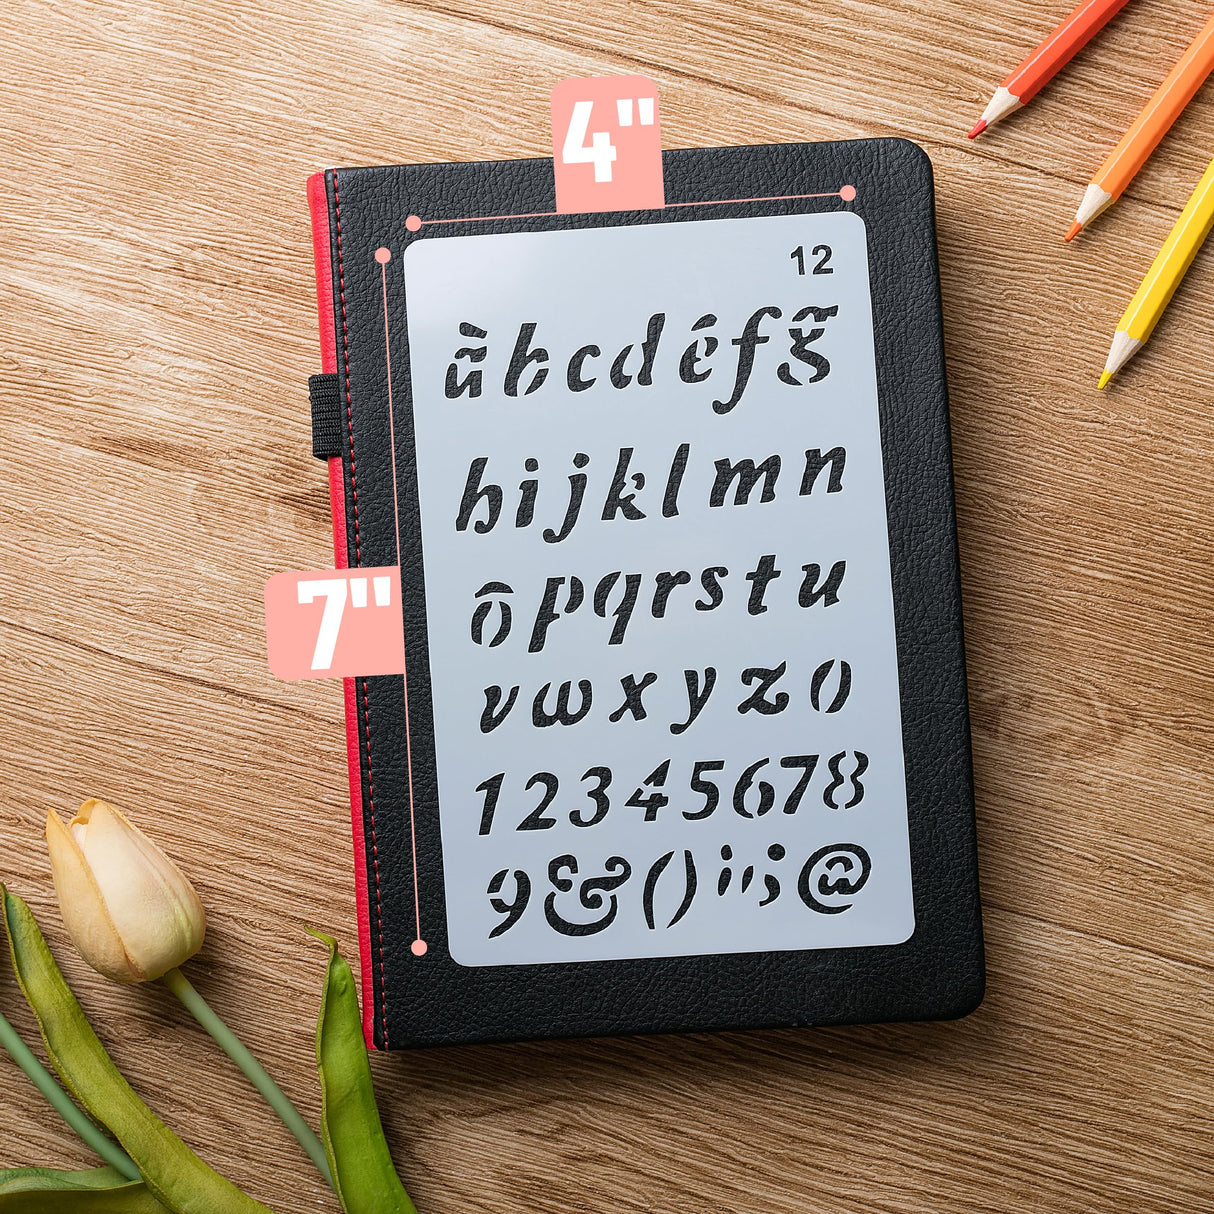 4"
12
àbcdéfğ
hijklmn
ôpqrstu
7"
vwxyz0
12345678
9&()¡";@